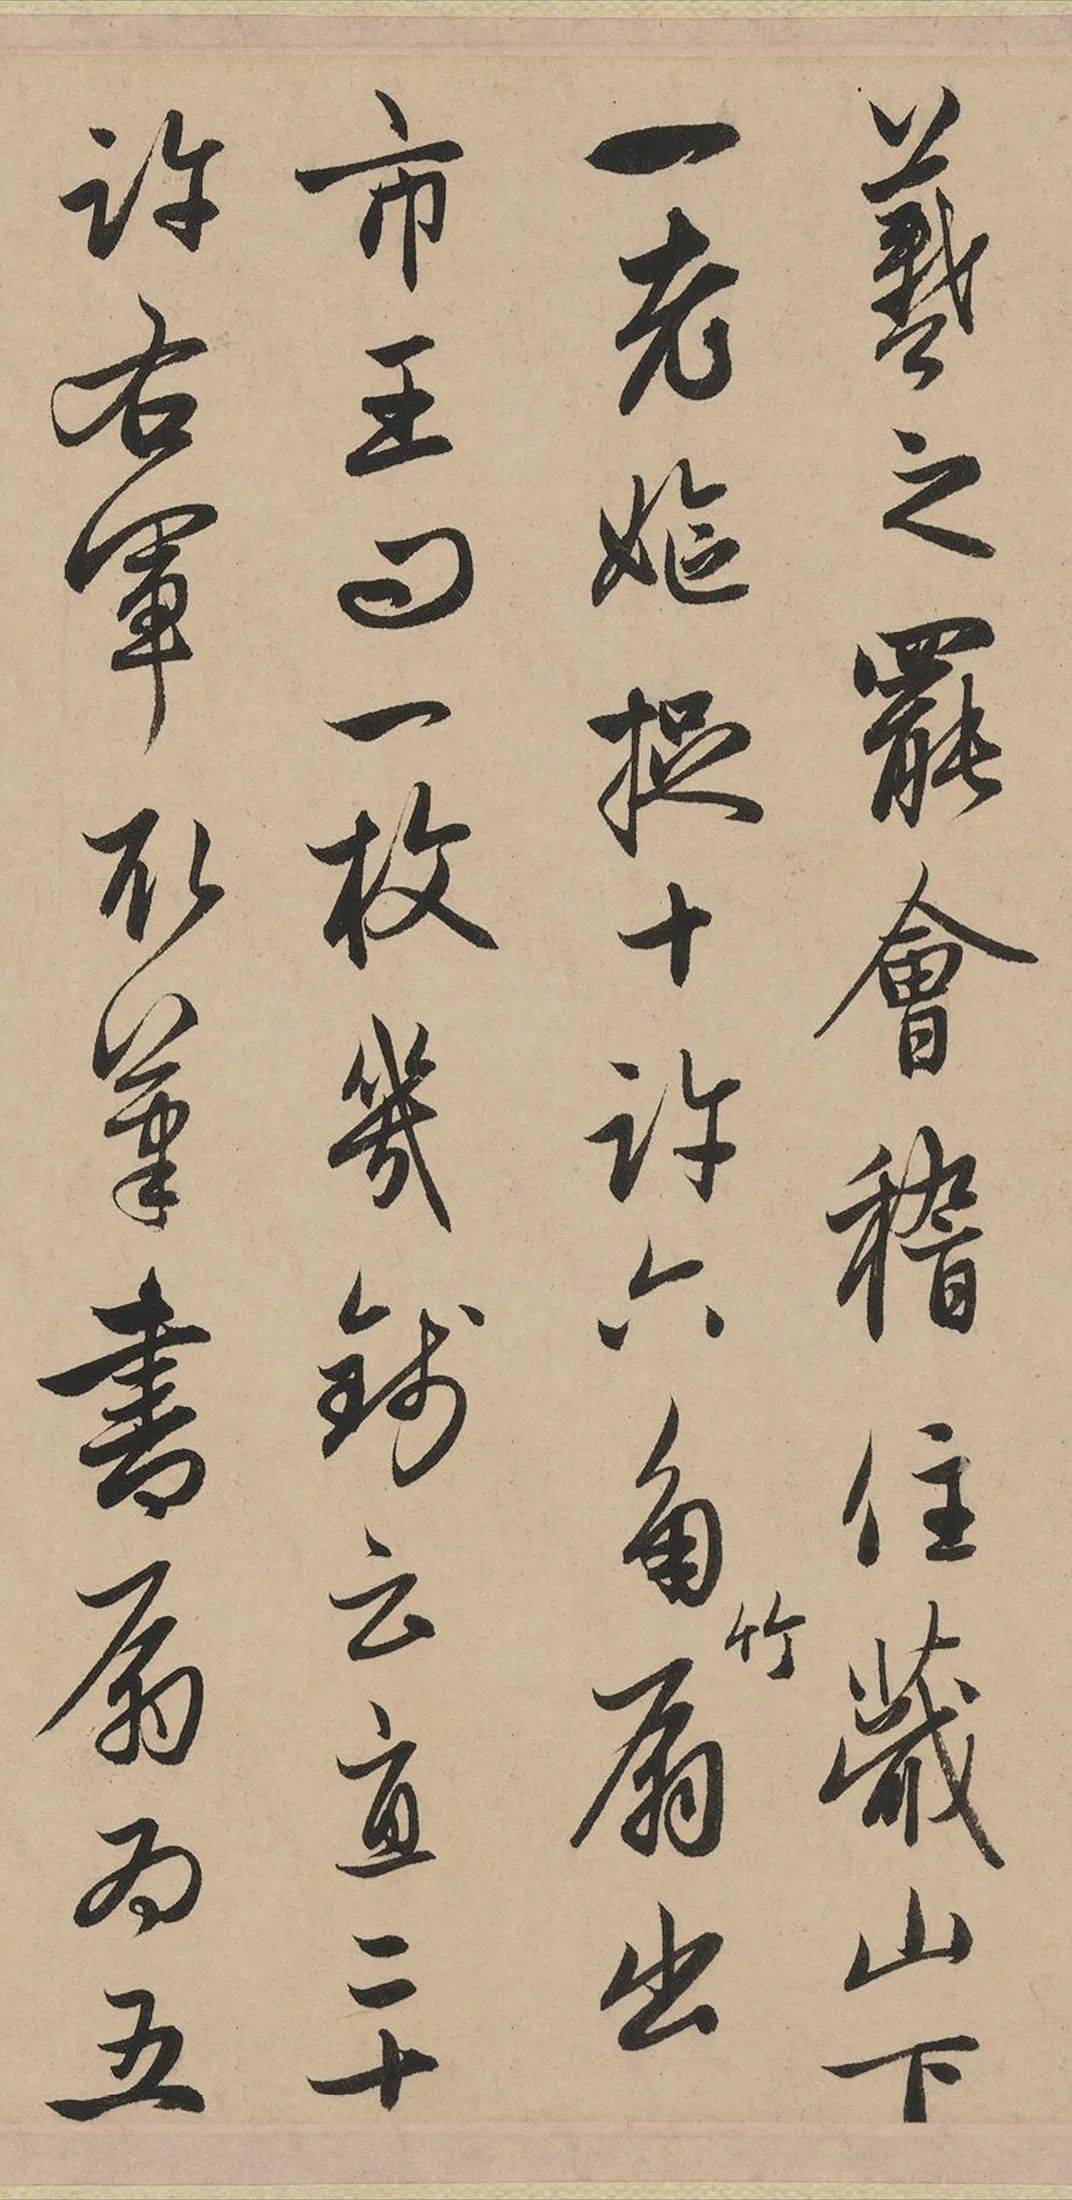 羲之罷會稽住蕺山下
一老嫗捉十許六角竹扇出
市王曰一枚幾錢云直二十
許右軍取筆書扇扇為五